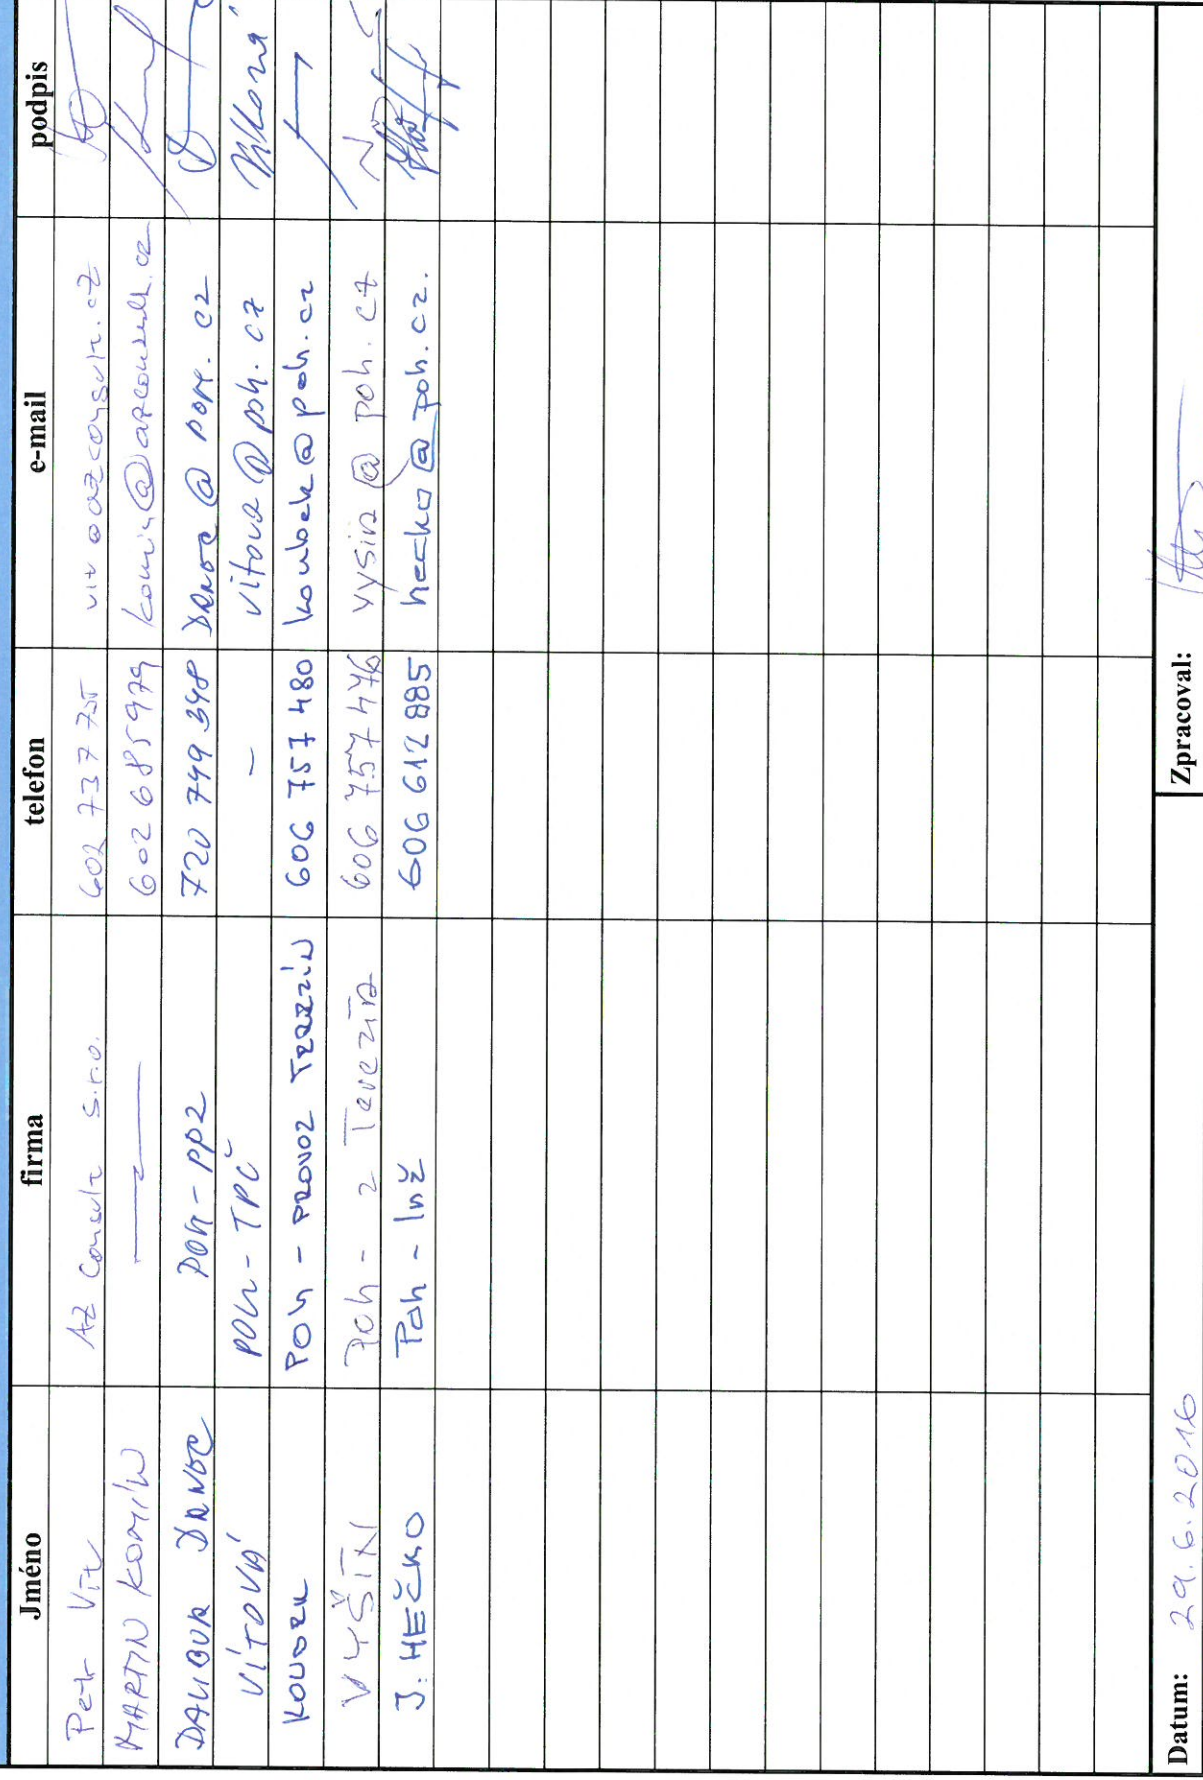 Jméno firma telefon e-mail podpis
Petr Vít AZ Consult s.r.o. 602 737 755 vit@azconsult.cz
MARTIN KOMÍN 602 685 979 komin@azconsult.cz
DALIBOR DRNEC POH - PP2 720 749 348
VÍTOVÁ POH - TPČ - vitova@poh.cz Vítová
KOUBEK POH - PROVOZ TEREZÍN 606 757 480 koubek@poh.cz
VYŠÍN Poh - 2 Terezín 606 757 476 vysin@poh.cz
J. HEČKO Poh - Inž 606 612 885 hecko@poh.cz.
Datum: 29.6.2016 Zpracoval: